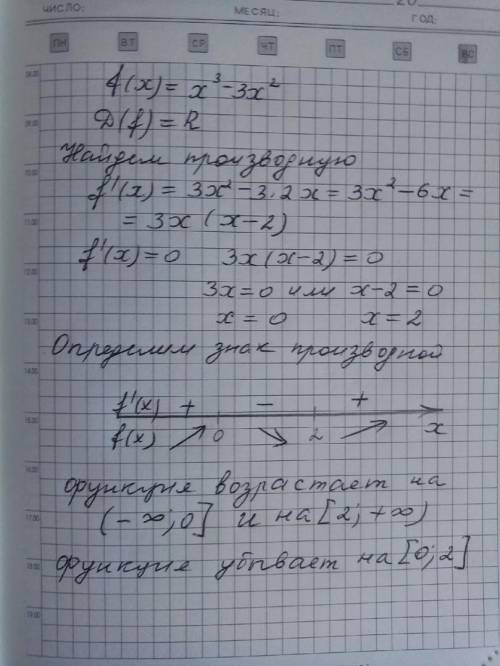 ЧИСЛО: МЕСЯЦ: 20 ГОД:
ПН ВТ СР ЧТ ПТ СБ ВС
f(x) = x³-3x²
D(f) = R
Найдем производную
f'(x) = 3x²-3·2x = 3x²-6x =
= 3x (x-2)
f'(x)=0 3x(x-2)=0
3x=0 или x-2=0
x = 0 x = 2
Определим знак производной
f'(x) + - +
f(x) ↗ 0 ↘ 2 ↗ x
функция возрастает на
(-∞;0] и на [2;+∞)
функция убывает на [0;2]